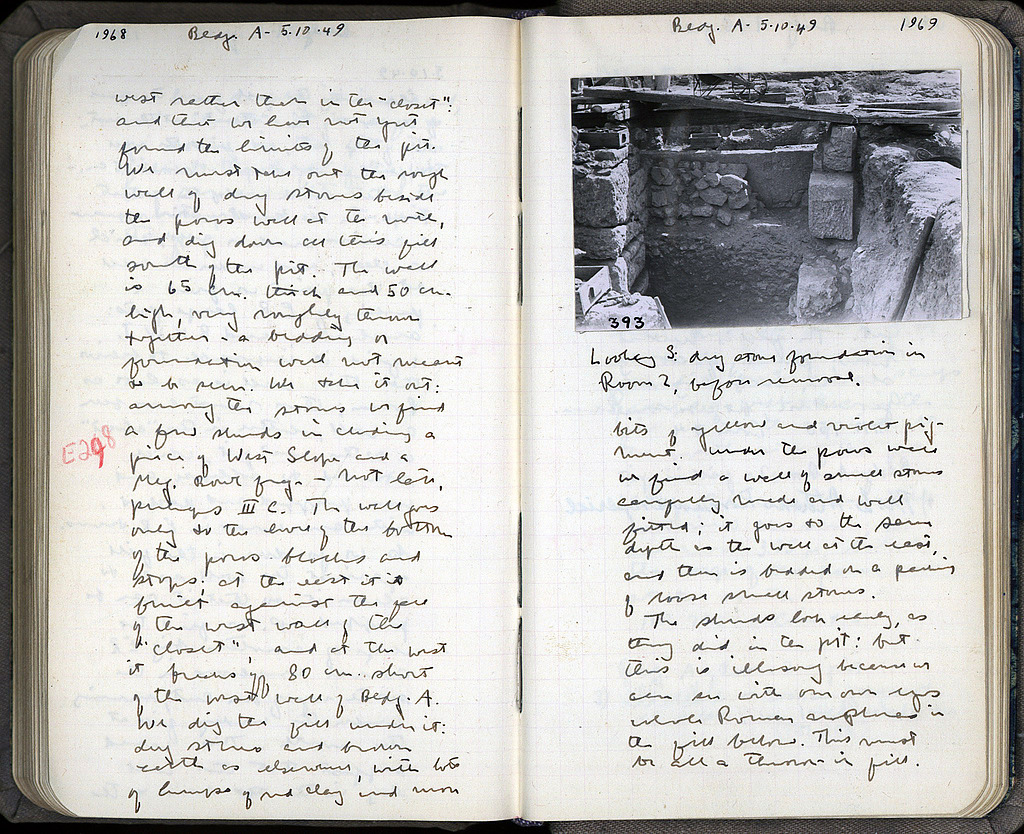 1968
Bldg. A - 5.10.49
west rather than in the "closet":
and that we have not yet
found the limits of the pit.
We must take out the rough
wall of dry stones beside
the poros wall at the north,
and dig down all this fill
south of the pit. The wall
is 65 cm. thick and 50 cm.
high, very roughly thrown
together - a bedding or
foundation wall not meant
to be seen. We take it out:
among the stones we find
a few sherds including a
E298
piece of West Slope and a
Meg. bowl frag. - not late,
perhaps III C. The wall goes
only to the level of the bottom
of the poros blocks and
stops; at the east it is
built against the face
of the west wall of the
"closet", and at the west
it breaks off 80 cm. short
of the west wall of Bldg. A.
We dig the fill under it:
dry stones and brown
earth as elsewhere, with lots
of lumps of red clay and more
Bldg. A - 5.10.49
1969
393
Looking S: dry stone foundation in
Room 2, before removal.
bits of yellow and violet pig-
ment. Under the poros wall
we find a wall of small stones
carefully made and well
fitted; it goes to the same
depth as the wall at the east,
and then is bedded on a packing
of loose small stones.
The sherds look early, as
they did in the pit: but
this is illusory because we
can see with our own eyes
whole Roman amphoras in
the fill below. This must
be all a thrown-in fill.